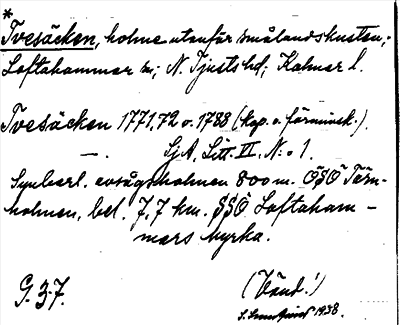 *
Tvesäcken, holme utanför smålandskusten;
Loftahammar sn; N. Tjusts hd; Kalmar l.
Tvesäcken 1771,72 o. 1788 (kop. o. förminsk.).
— . SjA, Litt. VI, N:o 1.
Synberl. avsågsholmen 800 m. ÖSÖ Tärn-
holmen, bel. 7,7 km. SSÖ Loftaham-
mars kyrka.
G. 37. (Vänd!)
1938.